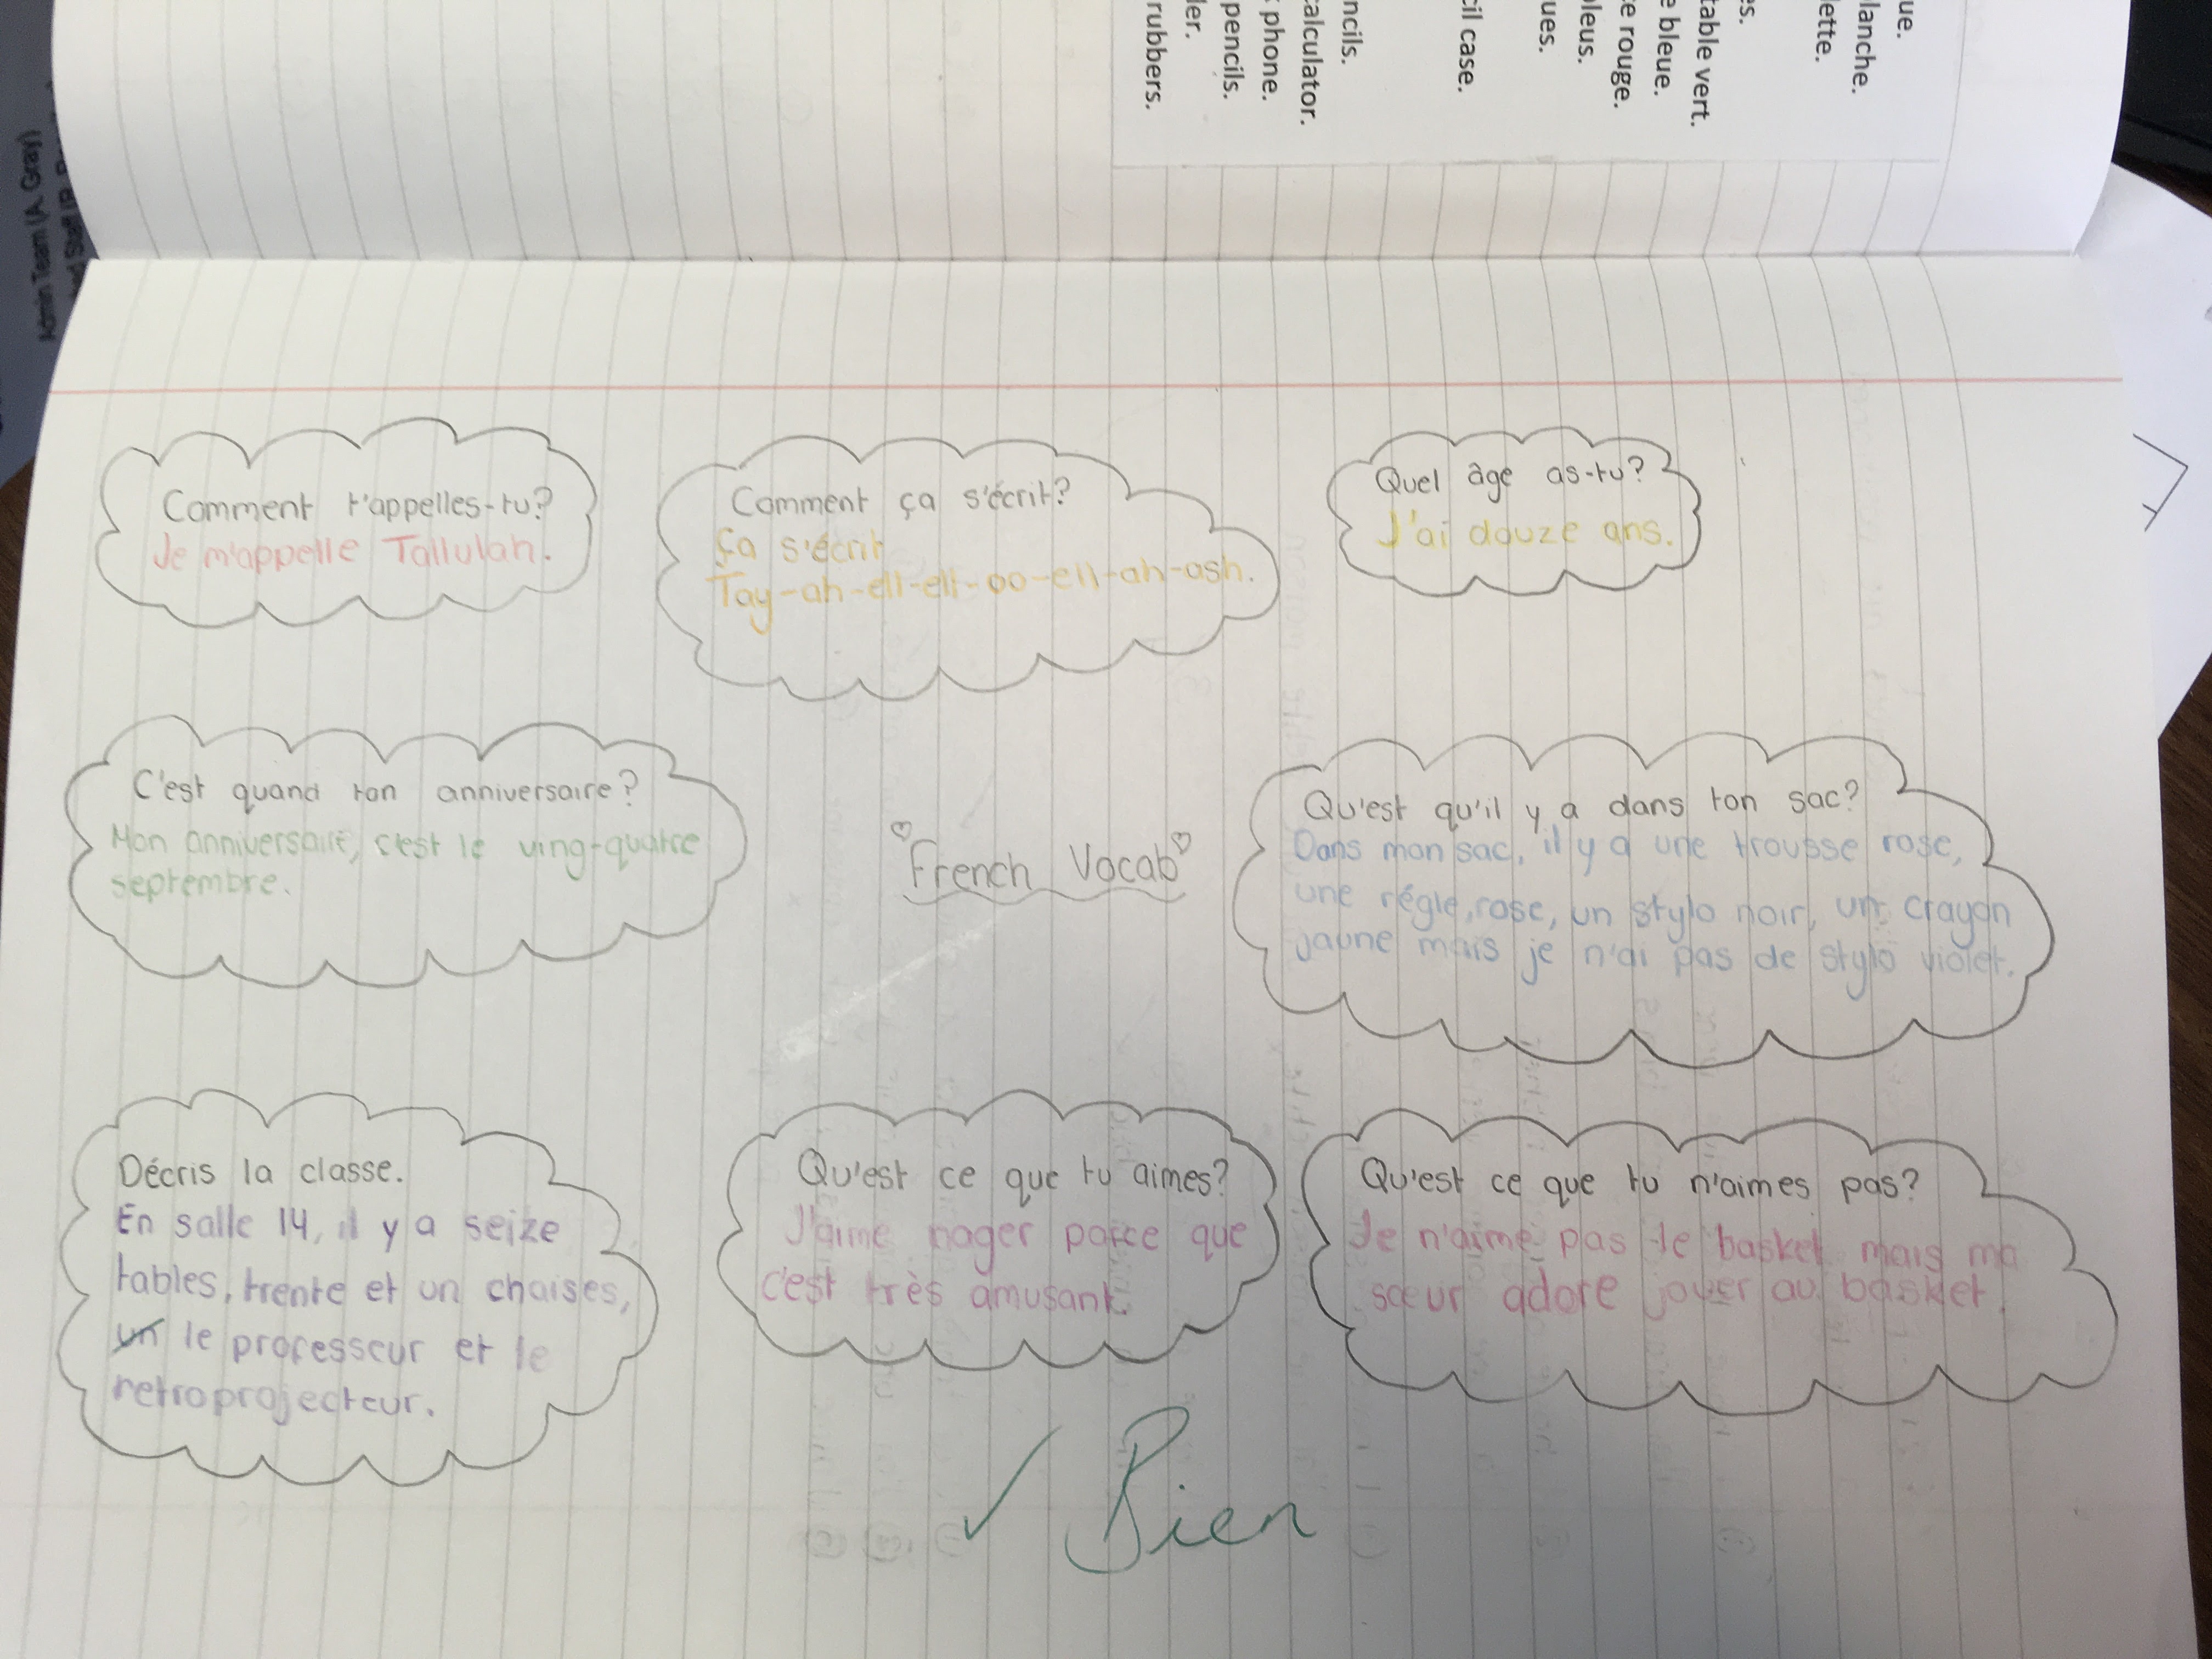 ue.
lanche.
lette.
es.
table vert.
e bleue.
e rouge.
bleus.
ues.
cil case.
ncils.
calculator.
phone.
pencils.
ler.
rubbers.
Comment t'appelles-tu?
Je m'appelle Tallulah.
Comment ça s'écrit?
Ça s'écrit
Tay-ah-ell-ell-oo-ell-ah-ash.
Quel âge as-tu?
J'ai douze ans.
C'est quand ton anniversaire?
Mon anniversaire, c'est le ving-quatre
septembre.
French Vocab
Qu'est qu'il y a dans ton sac?
Dans mon sac, il y a une trousse rose,
une régle, rose, un stylo noir, un crayon
jaune mais je n'ai pas de stylo violet.
Décris la classe.
En salle 14, il y a seize
tables, trente et un chaises,
un le professeur et le
retroprojecteur.
Qu'est ce que tu aimes?
J'aime nager parce que
c'est très amusant.
Qu'est ce que tu n'aimes pas?
Je n'aime pas le basket mais ma
sœur adore jouer au basket.
✓ Bien